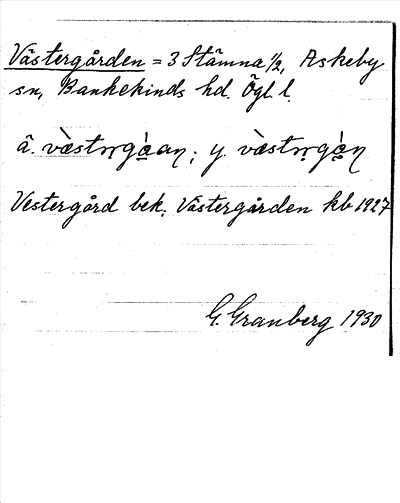 Västergården = 3 Stämna 1/2, Askeby
sn, Bankekinds hd. Ögl. l.
ä. ; y.
Vestergård bek. Västergården kb 1927
G. Granberg 1930